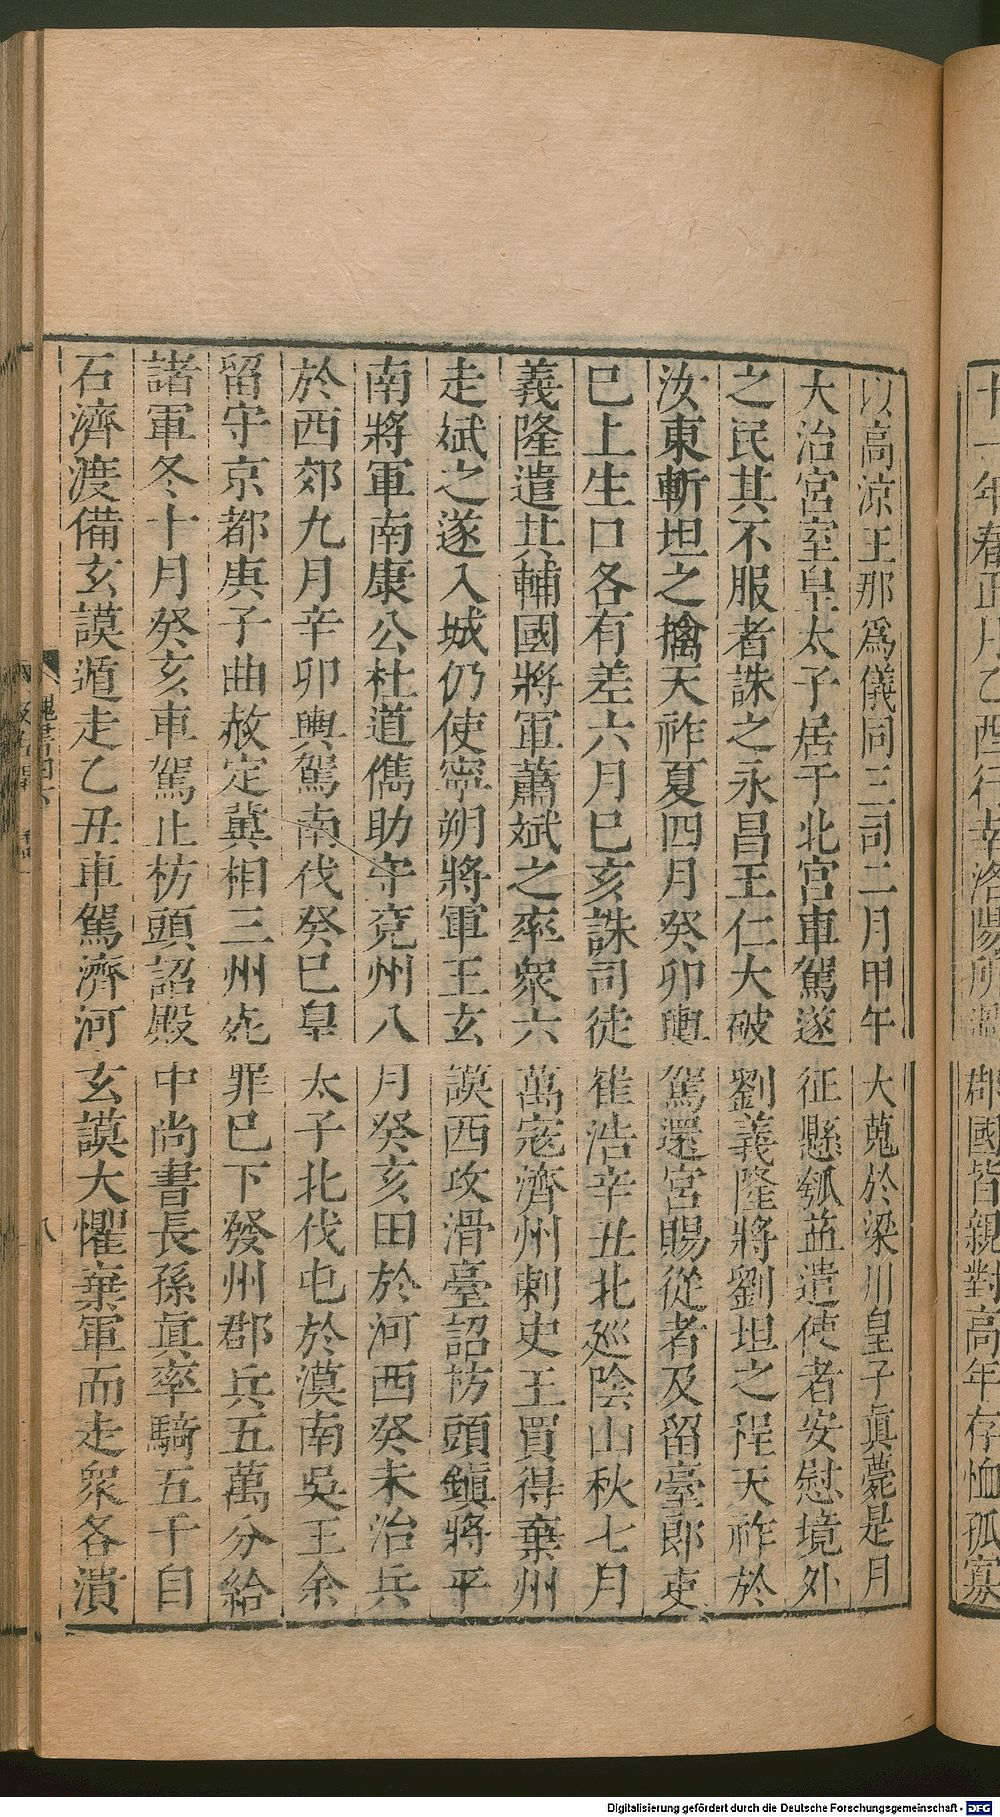 十一年春正月乙酉行幸洛陽所過郡國皆親對高年存恤孤寡
以高涼王那爲儀同三司二月甲午大蒐於梁川皇子眞薨是月
大治宮室皇太子居于北宮車駕遂征懸瓠益遣使者安慰境外
之民其不服者誅之永昌王仁大破劉義隆將劉坦之程天祚於
汝東斬坦之擒天祚夏四月癸卯輿駕還宮賜從者及留臺郎吏
巳上生口各有差六月巳亥誅司徒崔浩辛丑北廵陰山秋七月
義隆遣其輔國將軍蕭斌之率衆六萬寇濟州刺史王買得棄州
走斌之遂入城仍使寧朔將軍王玄謨西攻滑臺詔枋頭鎮將平
南將軍南康公杜道儁助守兗州八月癸亥田於河西癸未治兵
於西郊九月辛卯輿駕南伐癸巳皇太子北伐屯於漠南吳王余
留守京都庚子曲赦定冀相三州死罪巳下發州郡兵五萬分給
諸軍冬十月癸亥車駕止枋頭詔殿中尚書長孫眞率騎五千自
石濟渡備玄謨遁走乙丑車駕濟河玄謨大懼棄軍而走衆各潰
魏書四下
八
Digitalisierung gefördert durch die Deutsche Forschungsgemeinschaft - DFG